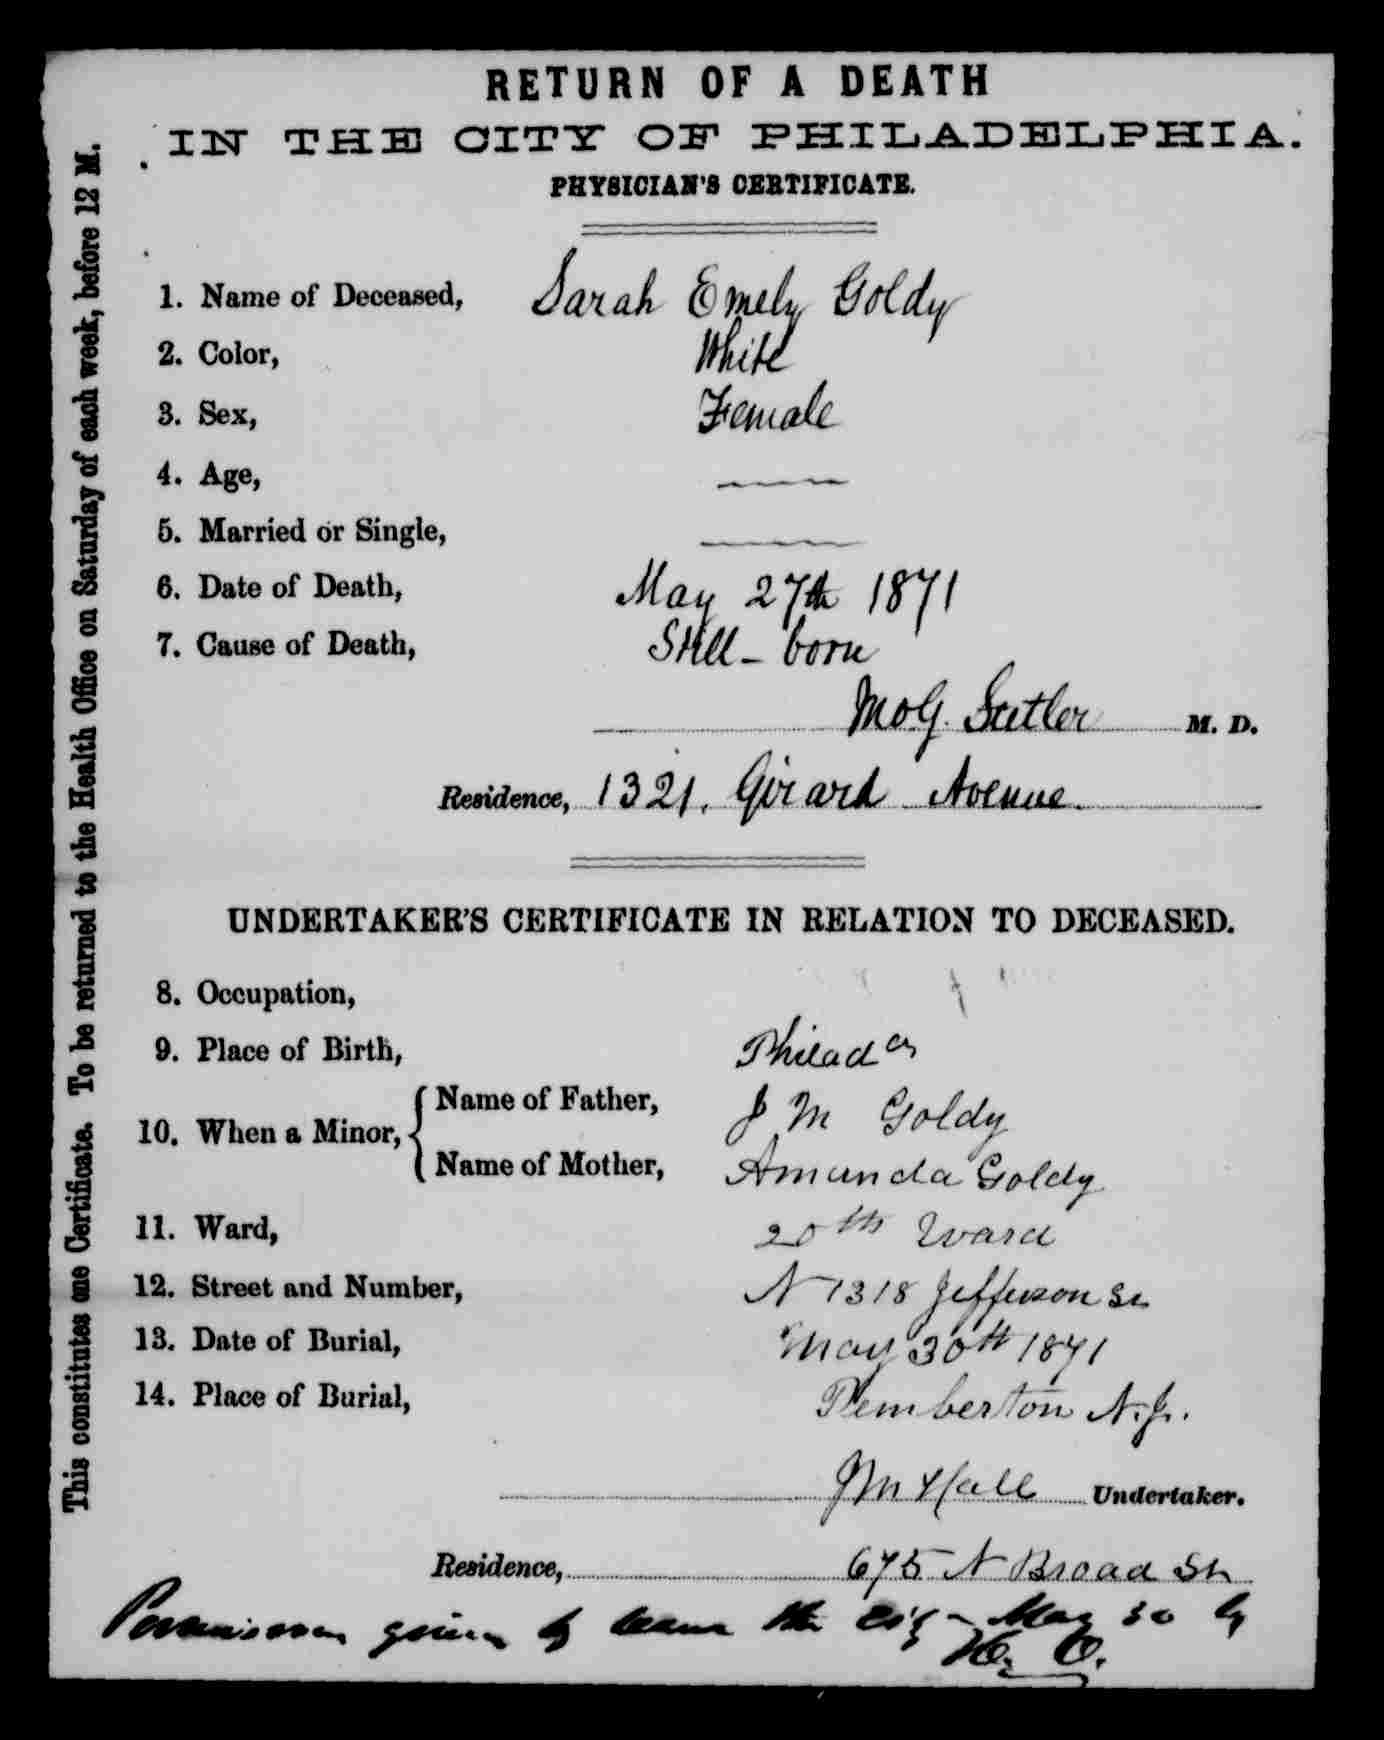 RETURN OF A DEATH
IN THE CITY OF PHILADELPHIA.
PHYSICIAN'S CERTIFICATE.
1. Name of Deceased, Sarah Emely Goldy
2. Color, White
3. Sex, Female
4. Age,
5. Married or Single,
6. Date of Death, May 27th 1871
7. Cause of Death, Still-born
M. D.
Residence, 1321. Girard Avenue.
UNDERTAKER'S CERTIFICATE IN RELATION TO DECEASED.
8. Occupation,
9. Place of Birth, Philada
10. When a Minor,
Name of Father, J M Goldy
Name of Mother, Amanda Goldy
11. Ward, 20th Ward
12. Street and Number, N 1318 Jefferson St
13. Date of Burial, May 30th 1871
14. Place of Burial, Pemberton N.J.
J M Hall Undertaker.
Residence, 675 N Broad St
Permission given to leave the City May 30 by
H. O.
This constitutes one Certificate. To be returned to the Health Office on Saturday of each week, before 12 M.